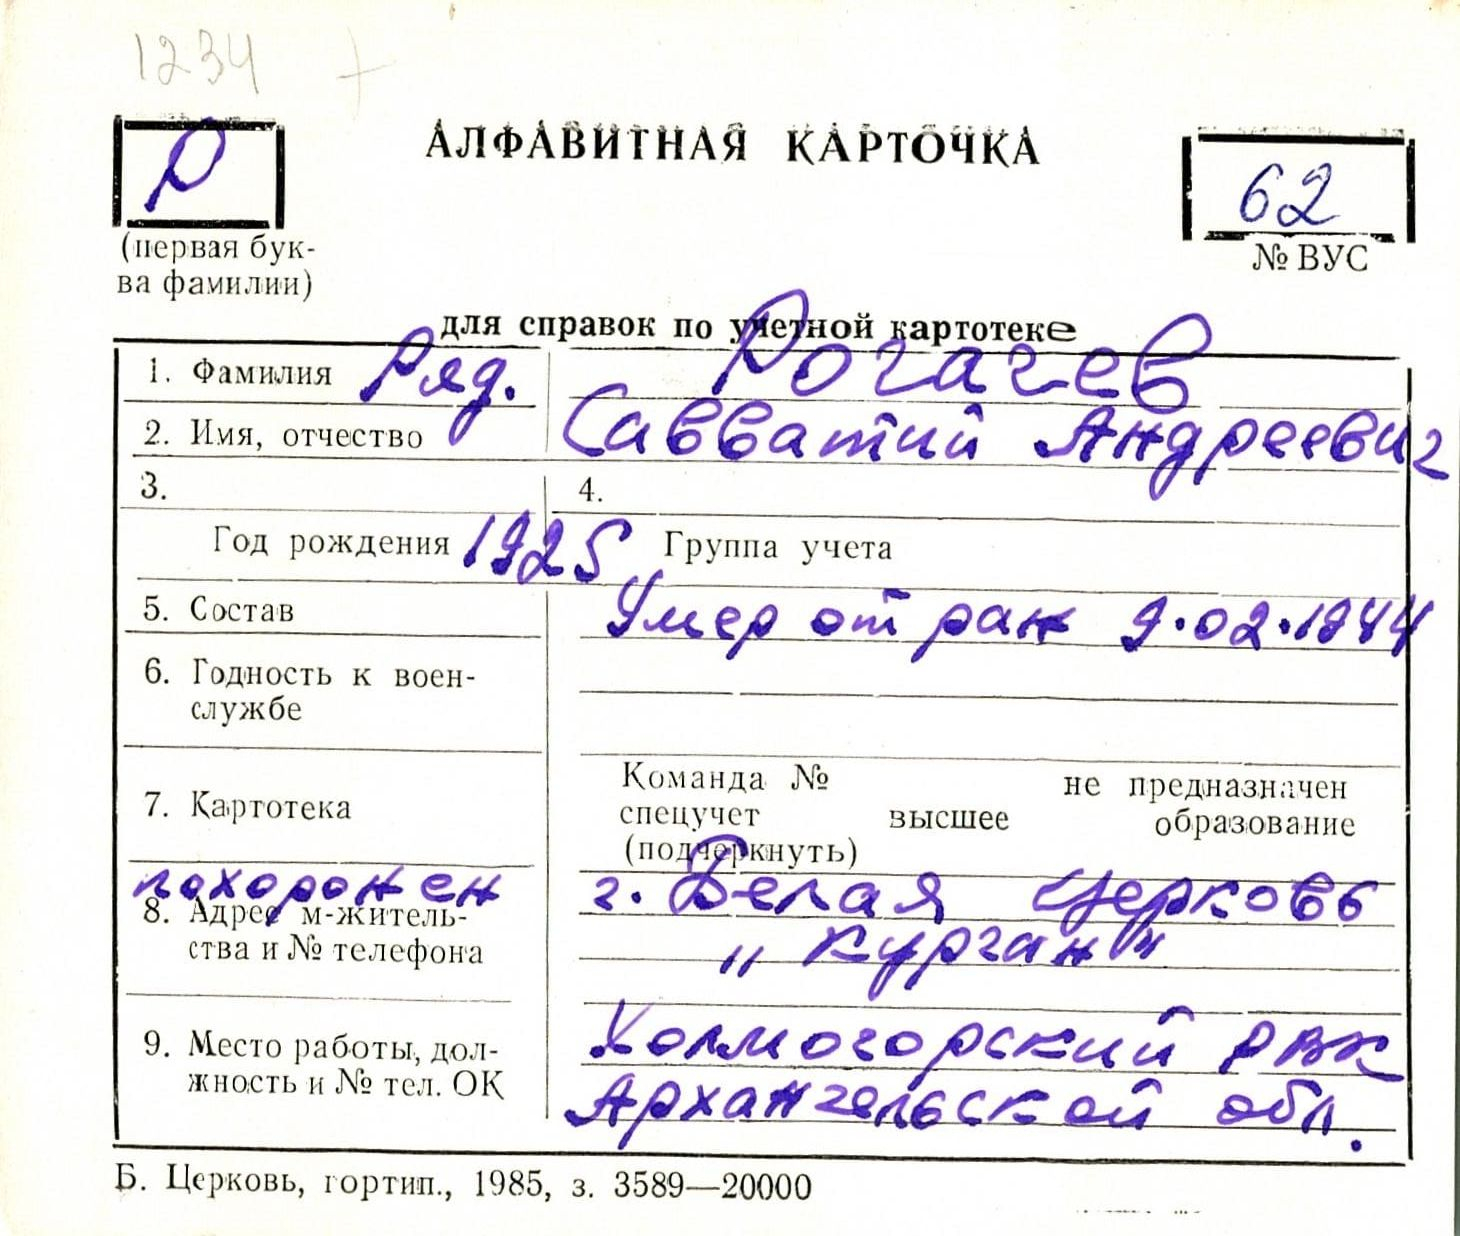 1234 +
Р АЛФАВИТНАЯ КАРТОЧКА 62
(первая бук-
ва фамилии)
№ ВУС
для справок по учетной картотеке
1. Фамилия Ряд. Рогачев
2. Имя, отчество Савватий Андреевич
3. 4.
Год рождения 1925 Группа учета
5. Состав Умер от ран 9.02.1944
6. Годность к воен-
службе
7. Картотека
Команда № не предназначен
спецучет высшее образование
(подчеркнуть)
похоронен г. Белая Церковь
8. Адрес м-житель-
ства и № телефона
"Курган"
9. Место работы, дол-
жность и № тел. ОК
Холмогорский РВК
Архангельской обл.
Б. Церковь, гортип., 1985, з. 3589—20000